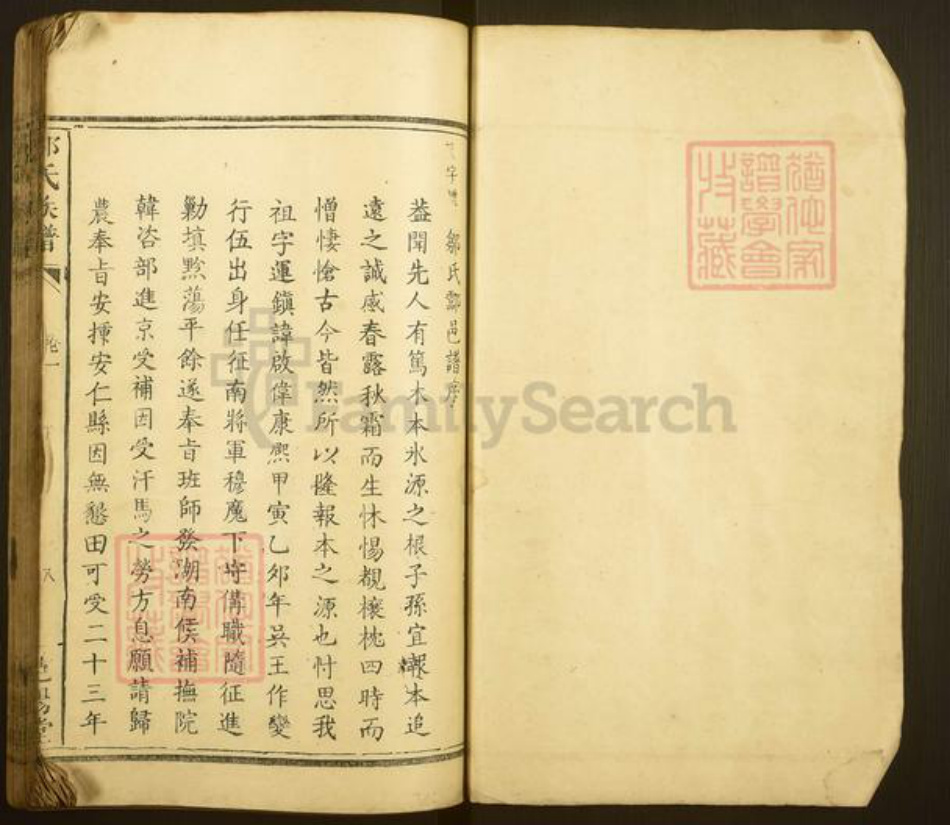 猶他家
譜學會
收藏
鄒氏酃邑譜序
葢聞先人有篤木本水源之根子孫宜報本追
遠之誠感春露秋霜而生怵惕覩榱桷四時而
憎悽愴古今皆然所以隆報本之源也忖思我
祖字運鎮諱啟偉康熙甲寅乙夘年吳王作變
行伍出身任征南將軍穆麾下守備職隨征進
勦填黔蕩平餘遂奉旨班師發湖南侯補撫院
韓咨部進京受補因受汗馬之勞方息願請歸
農奉旨安揷安仁縣因無懇田可受二十三年
氏族譜
FamilySearch